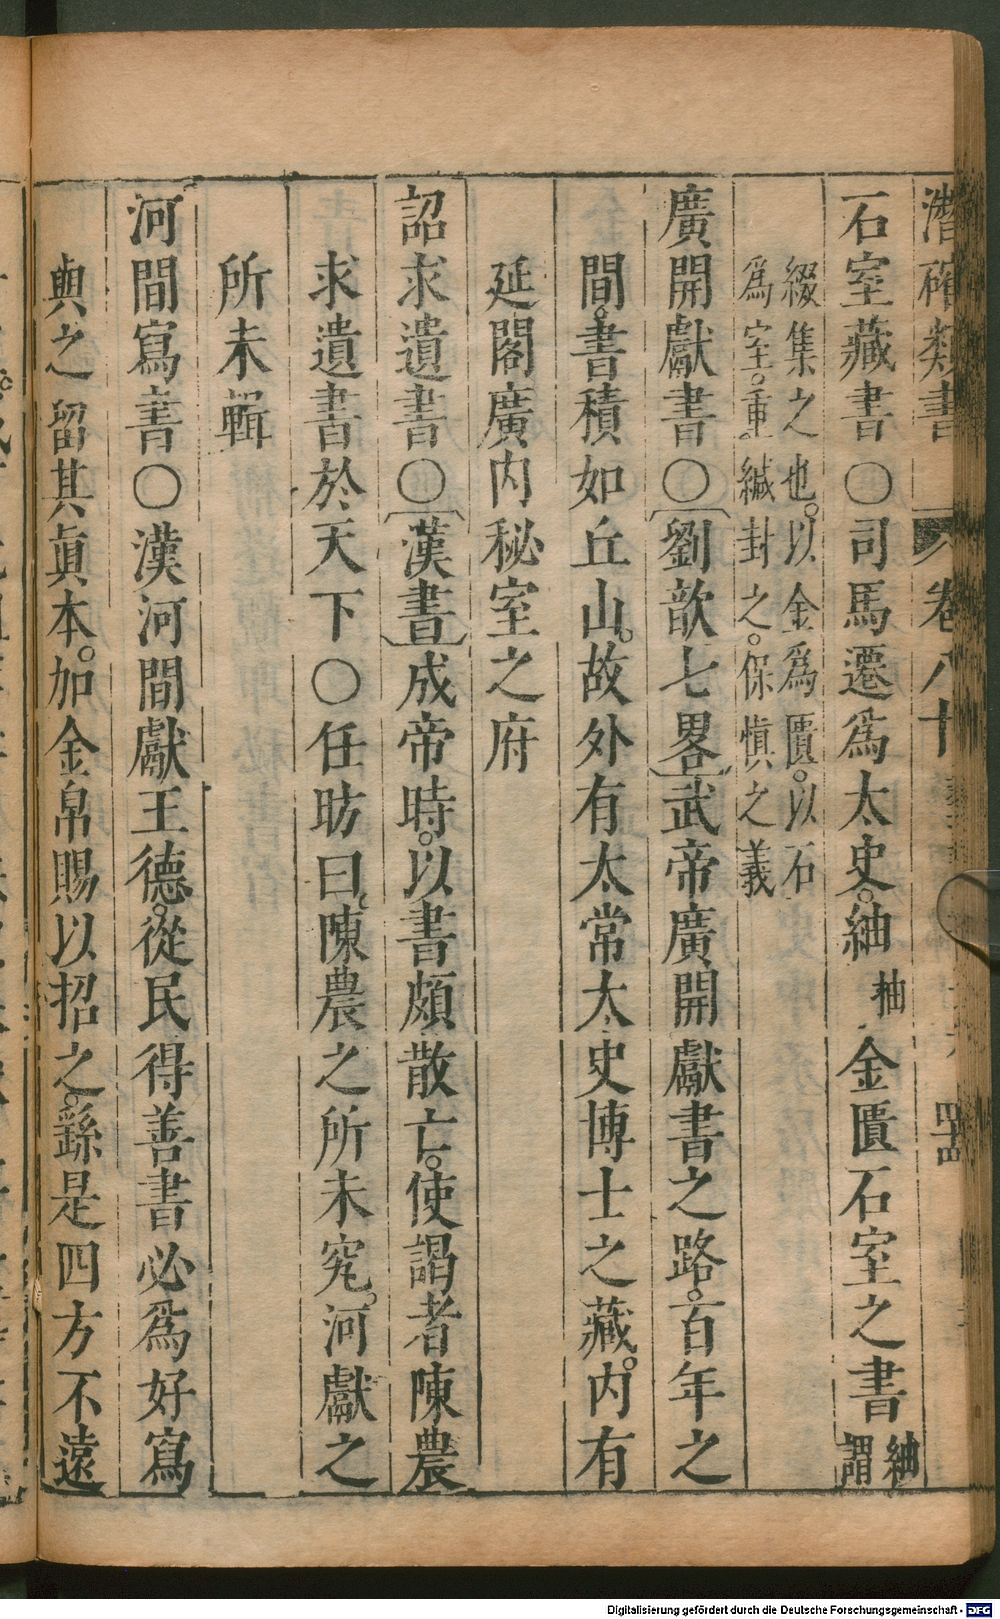 潛確類書 卷八十 四十四
石室藏書○司馬遷爲太史。紬抽金匱石室之書紬謂
綴集之也。以金爲匱。以石
爲室。重緘封之。保愼之義
廣開獻書○劉歆七畧武帝廣開獻書之路。百年之
間。書積如丘山。故外有太常太史博士之藏。内有
延閣廣内秘室之府
詔求遺書○漢書成帝時。以書頗散亡。使謁者陳農
求遺書於天下○任昉曰。陳農之所未究。河獻之
所未輯
河間寫書○漢河間獻王德。從民得善書必爲好寫
與之留其眞本。加金帛賜以招之。繇是四方不遠
Digitalisierung gefördert durch die Deutsche Forschungsgemeinschaft - DFG